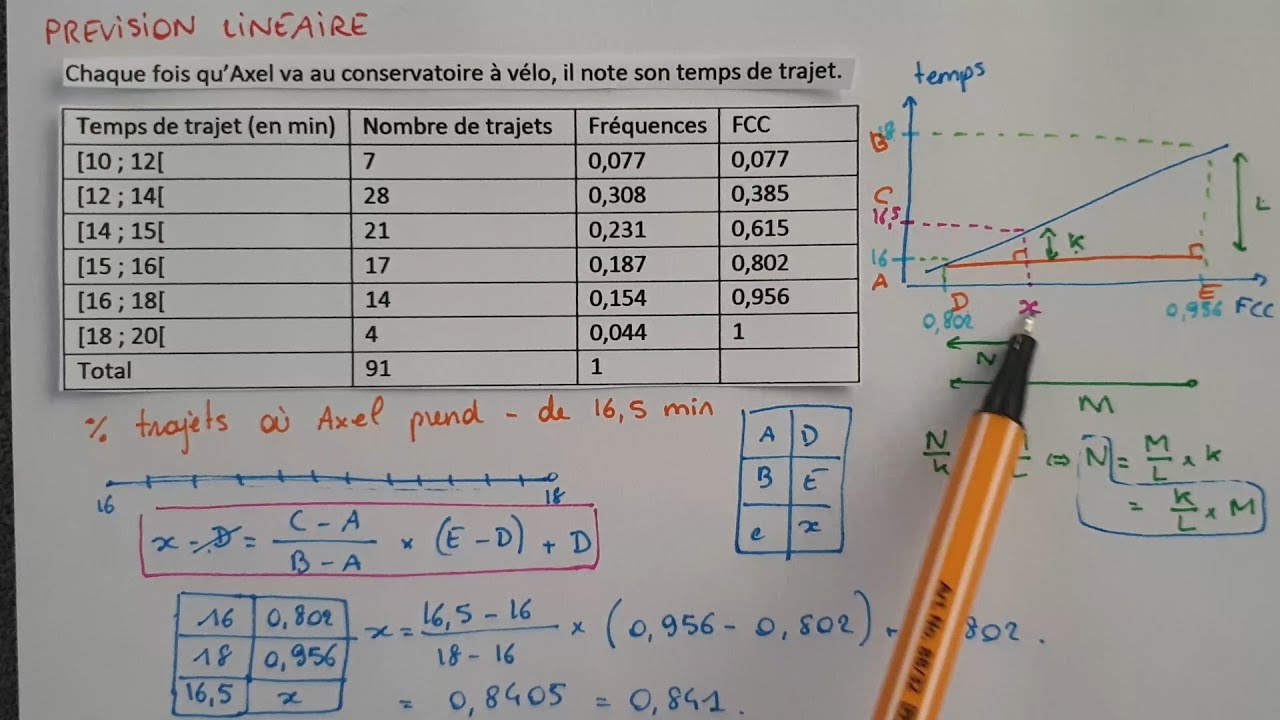 PREVISION LINEAIRE
Chaque fois qu'Axel va au conservatoire à vélo, il note son temps de trajet.
Temps de trajet (en min) Nombre de trajets Fréquences FCC
[10 ; 12[ 7 0,077 0,077
[12 ; 14[ 28 0,308 0,385
[14 ; 15[ 21 0,231 0,615
[15 ; 16[ 17 0,187 0,802
[16 ; 18[ 14 0,154 0,956
[18 ; 20[ 4 0,044 1
Total 91 1
temps
B 18
C
16,5
16
A
K
L
D x E
0,802 0,956 FCC
N
M
% trajets où Axel prend - de 16,5 min
16 18
x - D = (C - A)/(B - A) × (E - D) + D
A D
B E
c x
N/k ⇔ N = M/L × k
= k/L × M
16 0,802
18 0,956
16,5 x
x = (16,5 - 16)/(18 - 16) × (0,956 - 0,802) 802.
= 0,8405 = 0,841.
Art. No. 88/32